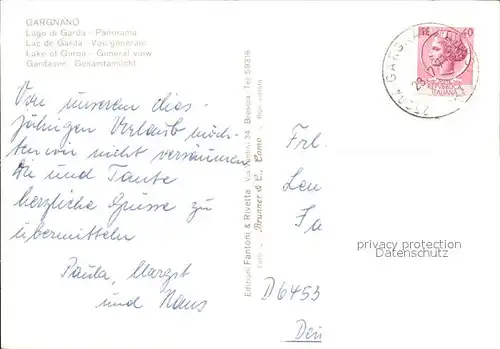 GARGNANO
Lago di Garda - Panorama
Lac de Garda - Vue generale
Lake of Garda - General view
Gardasee Gesamtansicht
Von unserem dies-
jährigen Urlaub möch-
ten wir nicht versäumen
Dir und Tante
herzliche Grüsse zu
übermitteln
Paula, Margot
und Hans
Edizioni Fantoni & Rivetta Via 34 Brescia Tel. 59316
Foto Brunner & C., Como - Rip. vietata
GARGNANO
40
REPUBBLICA
ITALIANA
Frl.
Leu
Fa
D6453
Deu
privacy protection
Datenschutz